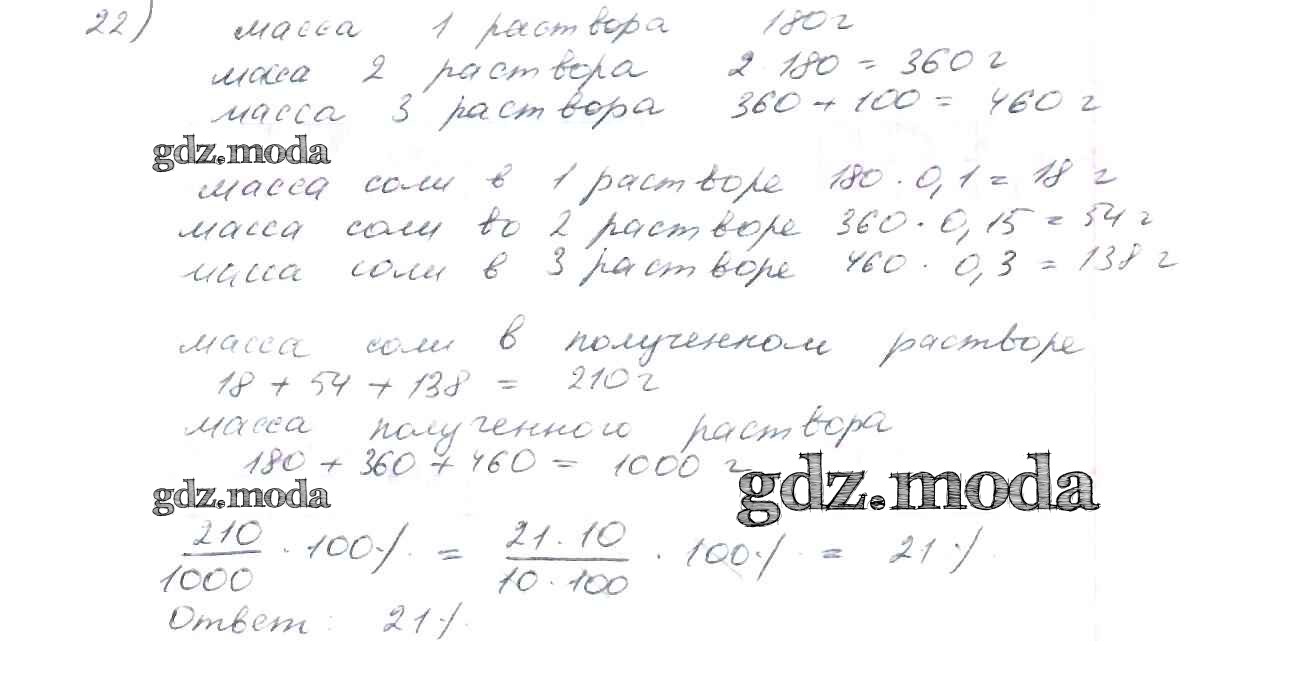 22) масса 1 раствора 180 г
масса 2 раствора 2·180 = 360 г
масса 3 раствора 360 + 100 = 460 г
gdz.moda
масса соли в 1 растворе 180 · 0,1 = 18 г
масса соли во 2 растворе 360 · 0,15 = 54 г
масса соли в 3 растворе 460 · 0,3 = 138 г
масса соли в полученном растворе
18 + 54 + 138 = 210 г
масса полученного раствора
180 + 360 + 460 = 1000 г
gdz.moda
gdz.moda
210/1000 · 100% = 21·10/10·100 · 100% = 21%
Ответ: 21%.